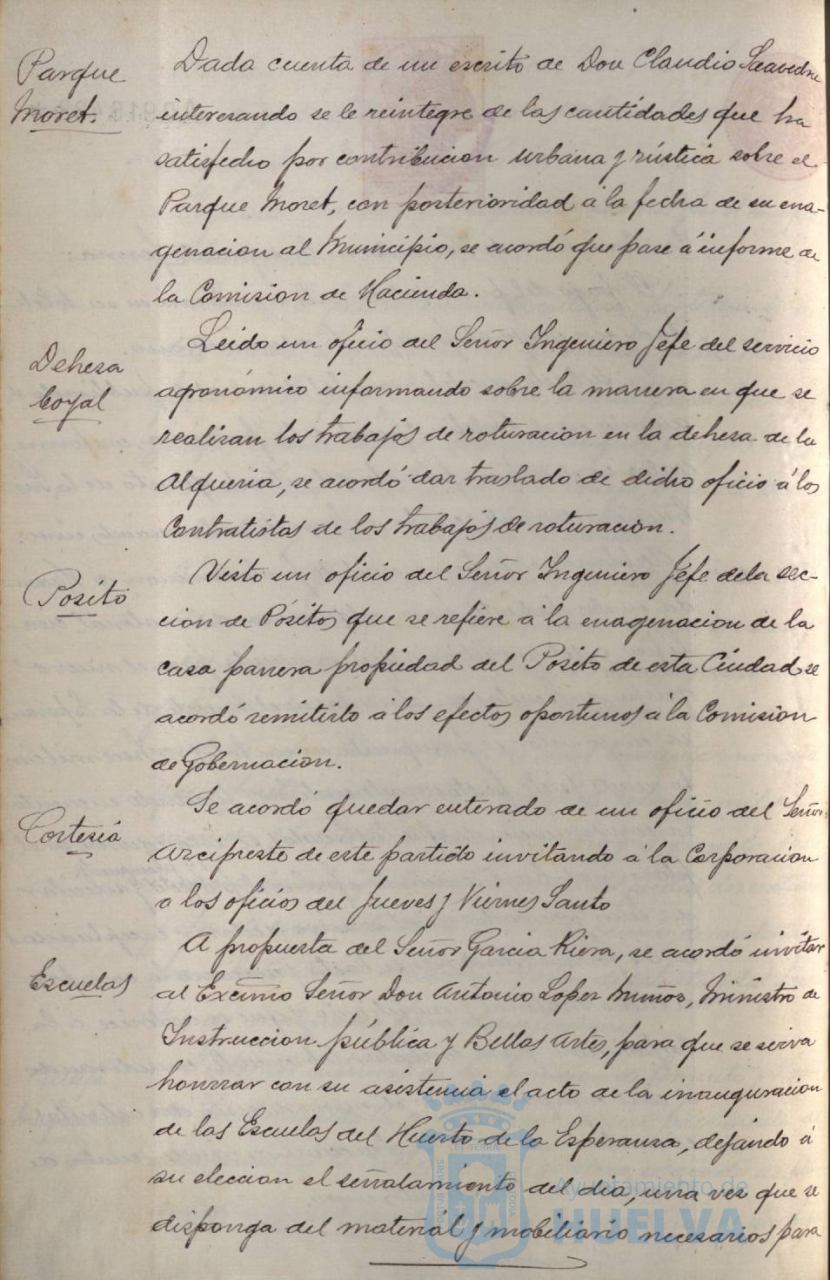 Parque
Moret.
Dada cuenta de un escrito de Don Claudio Saavedra
interesando se le reintegre de las cantidades que ha
satisfecho por contribucion urbana y rústica sobre el
Parque Moret, con posterioridad á la fecha de su ena-
genacion al Municipio, se acordó que pase á informe de
la Comision de Hacienda.
Dehesa
boyal
Leido un oficio del Señor Ingeniero Jefe del servicio
agronómico informando sobre la manera en que se
realizan los trabajos de roturacion en la dehesa de la
Alqueria, se acordó dar traslado de dicho oficio á los
Contratistas de los trabajos de roturacion.
Posito
Visto un oficio del Señor Ingeniero Jefe dela sec-
cion de Pósitos que se refiere á la enagenacion de la
casa panera propiedad del Posito de esta Ciudad se
acordó remitirlo á los efectos oportunos á la Comision
de Gobernacion.
Cortesia
Se acordó quedar enterado de un oficio del Señor
Arcipreste de este partido invitando á la Corporacion
a los oficios del Jueves y Viernes Santo
Escuelas
A propuesta del Señor Garcia Riera, se acordó invitar
al Excmo Señor Don Antonio Lopez Muños, Ministro de
Instruccion pública y Bellas Artes, para que se sirva
honrrar con su asistencia el acto de la inauguracion
de las Escuelas del Huerto de la Esperanza, dejando á
su eleccion el señalamiento del dia, una vez que se
disponga del material y mobiliario necesarios para
Ayuntamiento de
HUELVA